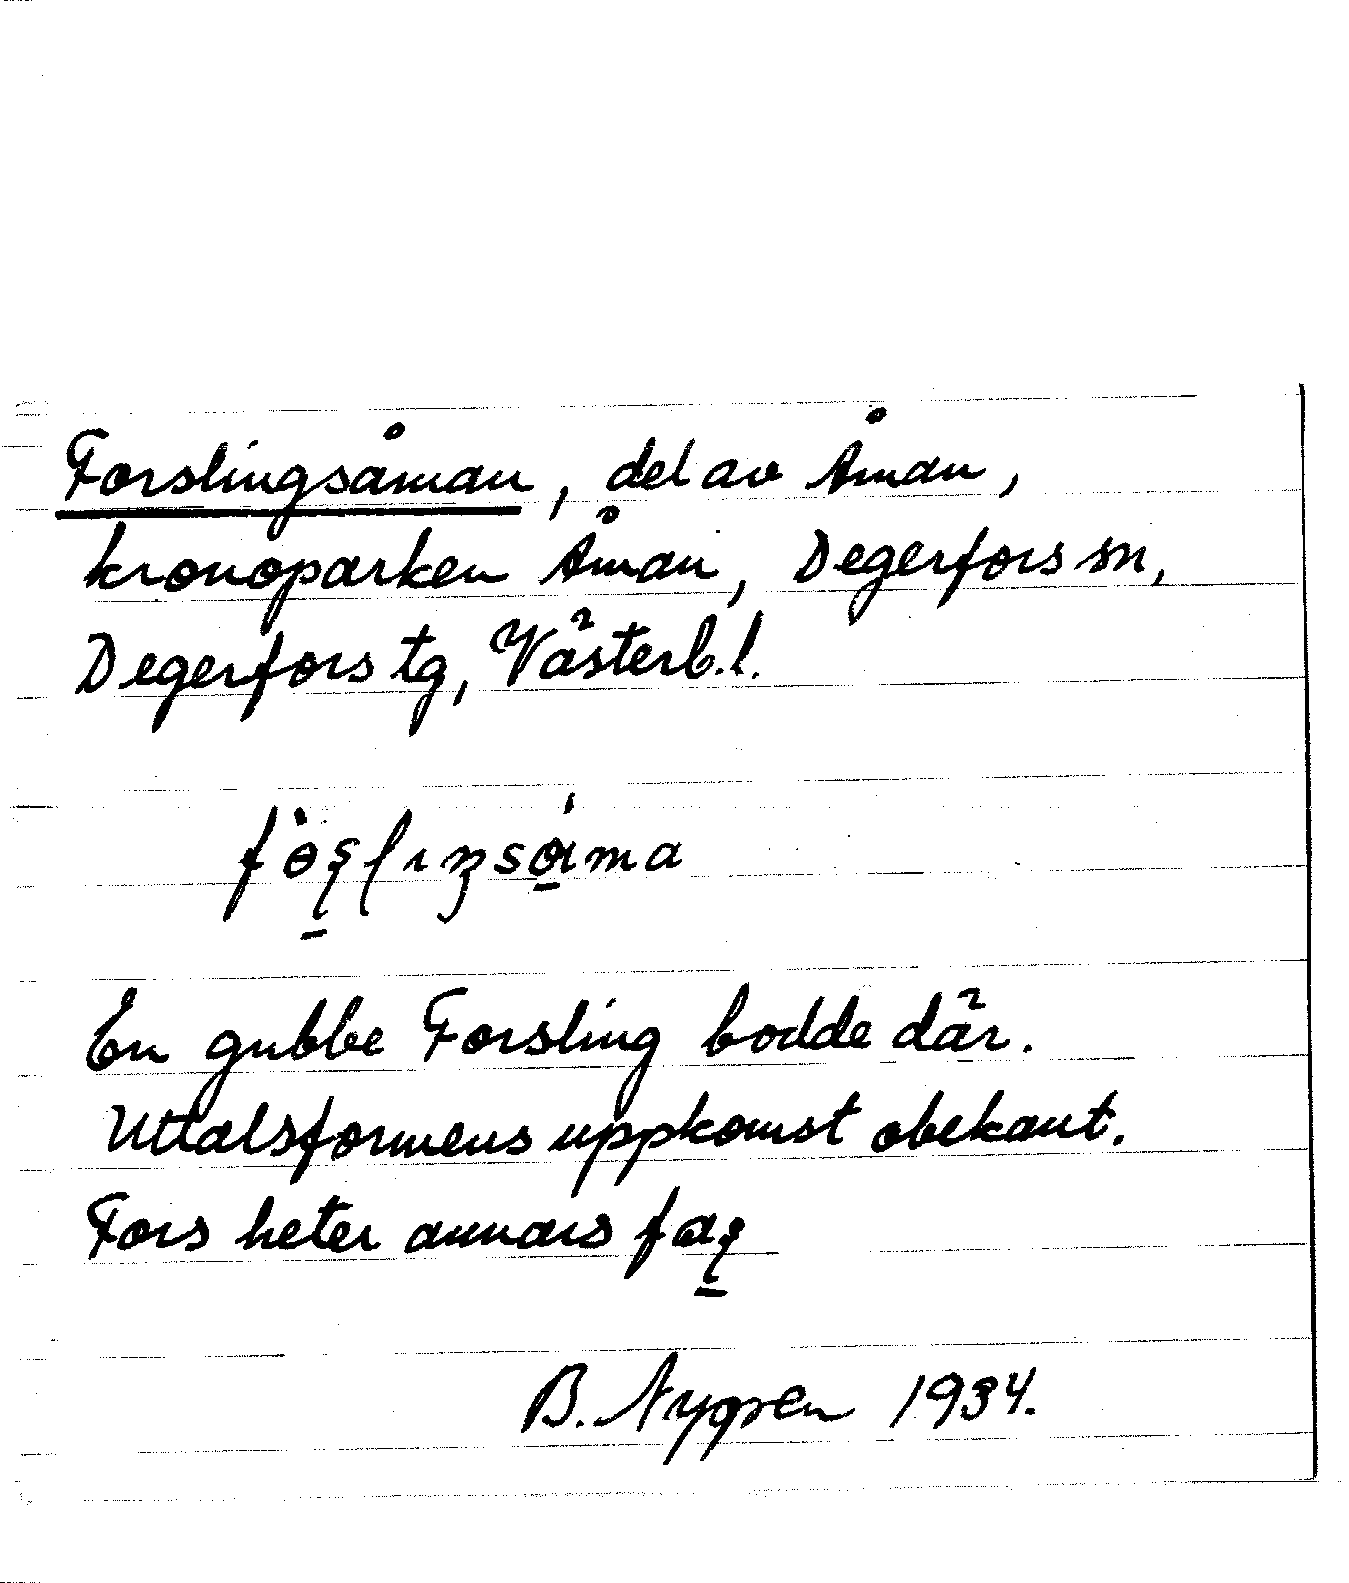 Forslingsåman, del av Åman,
kronoparken Åman, Degerfors sn,
Degerfors tg, Västerb.l.
En gubbe Forsling bodde där.
Uttalsformens uppkomst obekant.
Fors heter annars
B. Nygren 1934.